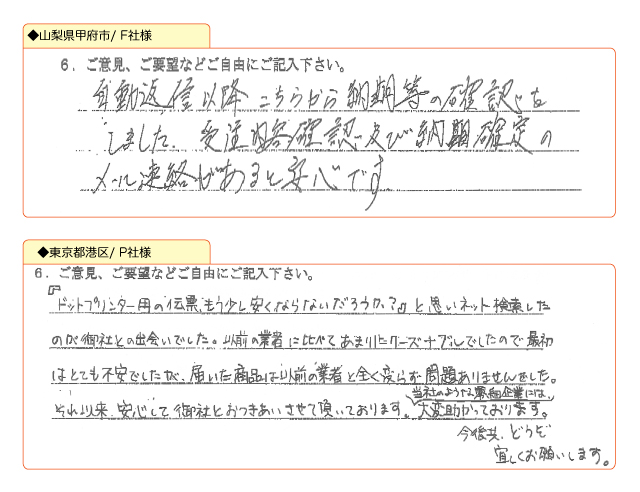 ◆山梨県甲府市/ F社様
6．ご意見、ご要望などご自由にご記入下さい。
自動返信以降こちらから納期等の確認を
しました。受注内容確認及び納期確定の
メール連絡があると安心です
◆東京都港区/ P社様
6．ご意見、ご要望などご自由にご記入下さい。
『ドットプリンター用の伝票、もう少し安くならないだろうか？』と思いネット検索した
のが御社との出会いでした。以前の業者に比べてあまりにリーズナブルでしたので最初
はとても不安でしたが、届いた商品は以前の業者と全く変らず問題ありませんでした。
当社のような零細企業には、
それ以来、安心して御社とおつきあいさせて頂いております。大変助かっております。
今後共、どうぞ
宜しくお願いします。